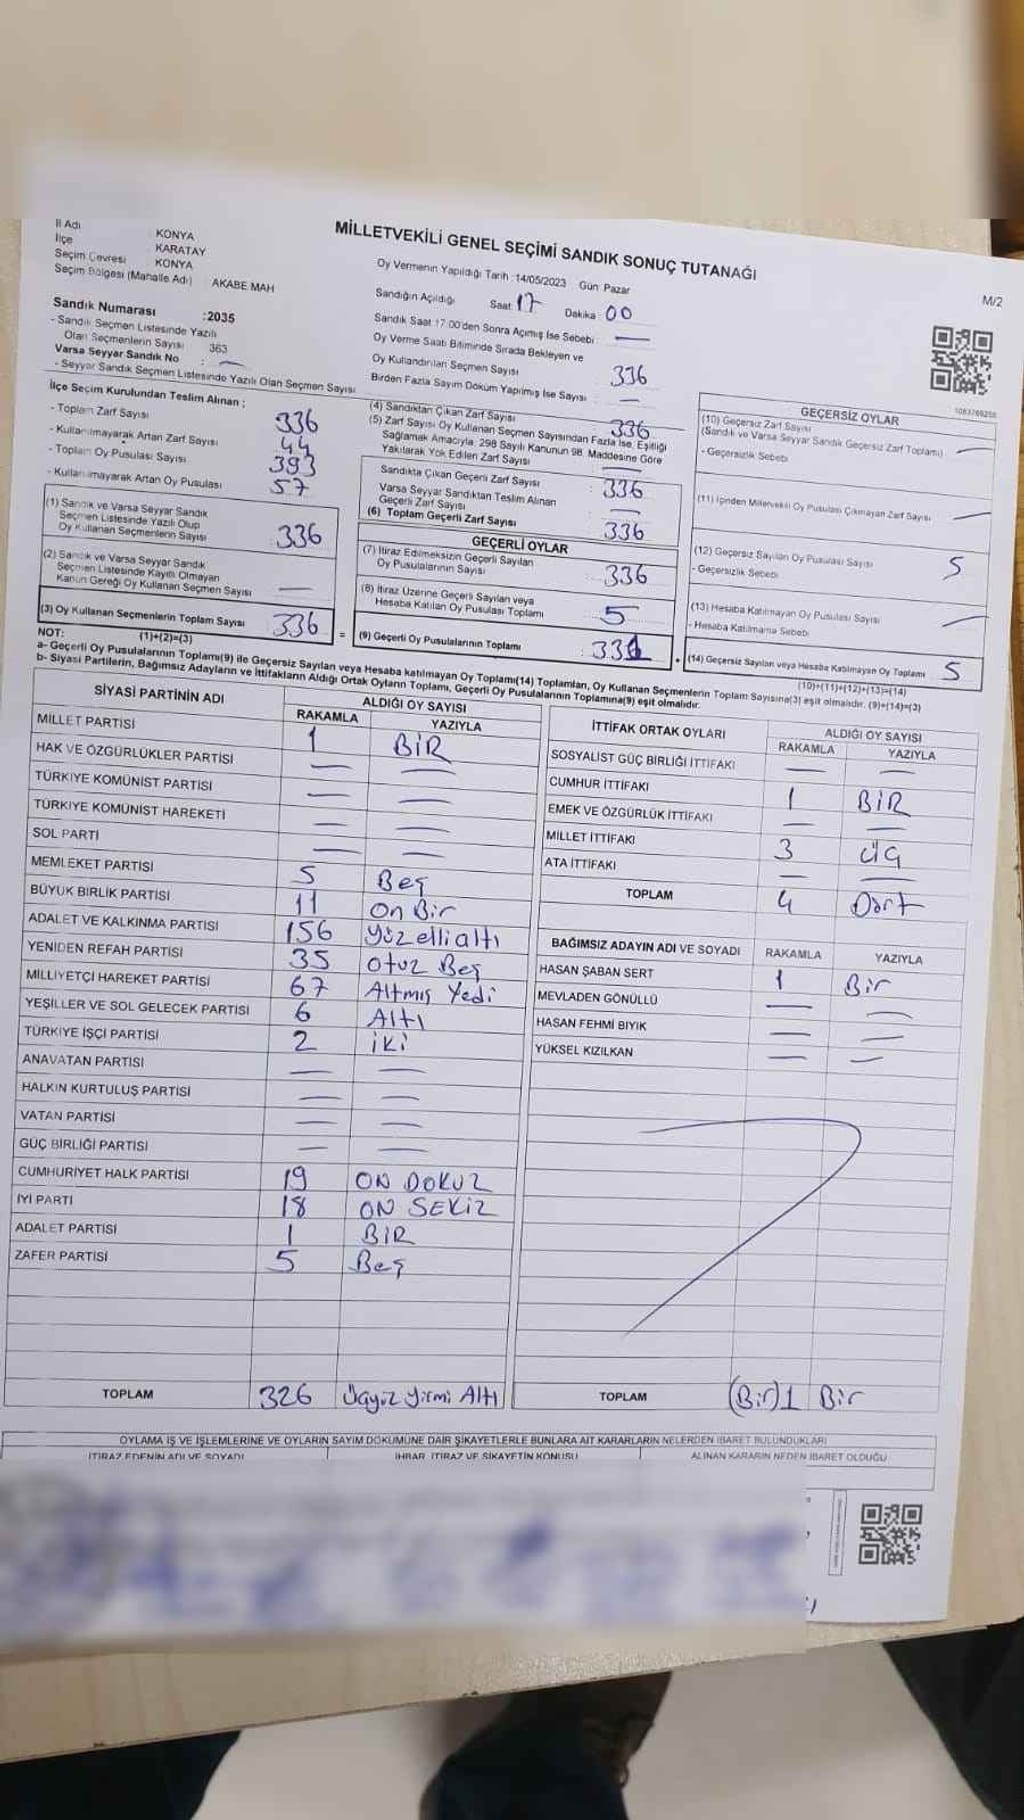 MİLLETVEKİLİ GENEL SEÇİMİ SANDIK SONUÇ TUTANAĞI
M/2
İl Adı KONYA
İlçe KARATAY
Seçim Çevresi KONYA
Seçim Bölgesi (Mahalle Adı) AKABE MAH
Oy Vermenin Yapıldığı Tarih :14/05/2023 Gün Pazar
Sandığın Açıldığı Saat 17 Dakika 00
Sandık Saat 17:00'den Sonra Açılmış İse Sebebi : —
Oy Verme Saati Bitiminde Sırada Bekleyen ve
Oy Kullandırılan Seçmen Sayısı 336
Birden Fazla Sayım Döküm Yapılmış İse Sayısı : —
Sandık Numarası :2035
- Sandık Seçmen Listesinde Yazılı
Olan Seçmenlerin Sayısı 363
Varsa Seyyar Sandık No : —
- Seyyar Sandık Seçmen Listesinde Yazılı Olan Seçmen Sayısı
İlçe Seçim Kurulundan Teslim Alınan ;
- Toplam Zarf Sayısı 336
- Kullanılmayarak Artan Zarf Sayısı 44
- Toplam Oy Pusulası Sayısı 393
- Kullanılmayarak Artan Oy Pusulası 57
(1) Sandık ve Varsa Seyyar Sandık
Seçmen Listesinde Yazılı Olup
Oy Kullanan Seçmenlerin Sayısı 336
(2) Sandık ve Varsa Seyyar Sandık
Seçmen Listesinde Kayıtlı Olmayan
Kanun Gereği Oy Kullanan Seçmen Sayısı —
(3) Oy Kullanan Seçmenlerin Toplam Sayısı 336 =
(1)+(2)=(3)
(4) Sandıktan Çıkan Zarf Sayısı : 336
(5) Zarf Sayısı Oy Kullanan Seçmen Sayısından Fazla İse, Eşitliği
Sağlamak Amacıyla, 298 Sayılı Kanunun 98. Maddesine Göre
Yakılarak Yok Edilen Zarf Sayısı —
Sandıkta Çıkan Geçerli Zarf Sayısı : 336
Varsa Seyyar Sandıktan Teslim Alınan
Geçerli Zarf Sayısı : —
(6) Toplam Geçerli Zarf Sayısı 336
GEÇERLİ OYLAR
(7) İtiraz Edilmeksizin Geçerli Sayılan
Oy Pusulalarının Sayısı : 336
(8) İtiraz Üzerine Geçerli Sayılan veya
Hesaba Katılan Oy Pusulası Toplamı : 5
(9) Geçerli Oy Pusulalarının Toplamı : 331 +
1083769256
GEÇERSİZ OYLAR
(10) Geçersiz Zarf Sayısı
(Sandık ve Varsa Seyyar Sandık Geçersiz Zarf Toplamı) —
- Geçersizlik Sebebi
(11) İçinden Milletvekili Oy Pusulası Çıkmayan Zarf Sayısı —
(12) Geçersiz Sayılan Oy Pusulası Sayısı 5
- Geçersizlik Sebebi
(13) Hesaba Katılmayan Oy Pusulası Sayısı —
- Hesaba Katılmama Sebebi
(14) Geçersiz Sayılan veya Hesaba Katılmayan Oy Toplamı 5
(10)+(11)+(12)+(13)=(14)
NOT:
a- Geçerli Oy Pusulalarının Toplamı(9) ile Geçersiz Sayılan veya Hesaba katılmayan Oy Toplamı(14) Toplamları, Oy Kullanan Seçmenlerin Toplam Sayısına(3) eşit olmalıdır. (9)+(14)=(3)
b- Siyasi Partilerin, Bağımsız Adayların ve İttifakların Aldığı Ortak Oyların Toplamı, Geçerli Oy Pusulalarının Toplamına(9) eşit olmalıdır.
SİYASİ PARTİNİN ADI ALDIĞI OY SAYISI
RAKAMLA YAZIYLA
MİLLET PARTİSİ 1 BİR
HAK VE ÖZGÜRLÜKLER PARTİSİ — —
TÜRKİYE KOMÜNİST PARTİSİ — —
TÜRKİYE KOMÜNİST HAREKETİ — —
SOL PARTİ — —
MEMLEKET PARTİSİ 5 Beş
BÜYÜK BİRLİK PARTİSİ 11 On Bir
ADALET VE KALKINMA PARTİSİ 156 Yüz elli altı
YENİDEN REFAH PARTİSİ 35 Otuz Beş
MİLLİYETÇİ HAREKET PARTİSİ 67 Altmış Yedi
YEŞİLLER VE SOL GELECEK PARTİSİ 6 Altı
TÜRKİYE İŞÇİ PARTİSİ 2 iki
ANAVATAN PARTİSİ — —
HALKIN KURTULUŞ PARTİSİ — —
VATAN PARTİSİ — —
GÜÇ BİRLİĞİ PARTİSİ — —
CUMHURİYET HALK PARTİSİ 19 ON DOKUZ
İYİ PARTİ 18 ON SEKİZ
ADALET PARTİSİ 1 BİR
ZAFER PARTİSİ 5 Beş
TOPLAM 326 Üçyüz Yirmi Altı
İTTİFAK ORTAK OYLARI ALDIĞI OY SAYISI
RAKAMLA YAZIYLA
SOSYALİST GÜÇ BİRLİĞİ İTTİFAKI — —
CUMHUR İTTİFAKI 1 BİR
EMEK VE ÖZGÜRLÜK İTTİFAKI — —
MİLLET İTTİFAKI 3 ÜÇ
ATA İTTİFAKI — —
TOPLAM 4 Dört
BAĞIMSIZ ADAYIN ADI VE SOYADI RAKAMLA YAZIYLA
HASAN ŞABAN SERT 1 Bir
MEVLADEN GÖNÜLLÜ — —
HASAN FEHMİ BIYIK — —
YÜKSEL KIZILKAN — —
TOPLAM (Bir) 1 Bir
OYLAMA İŞ VE İŞLEMLERİNE VE OYLARIN SAYIM DÖKÜMÜNE DAİR ŞİKAYETLERLE BUNLARA AİT KARARLARIN NELERDEN İBARET BULUNDUKLARI
İTİRAZ EDENİN ADI VE SOYADI İHBAR, İTİRAZ VE ŞİKAYETİN KONUSU ALINAN KARARIN NEDEN İBARET OLDUĞU